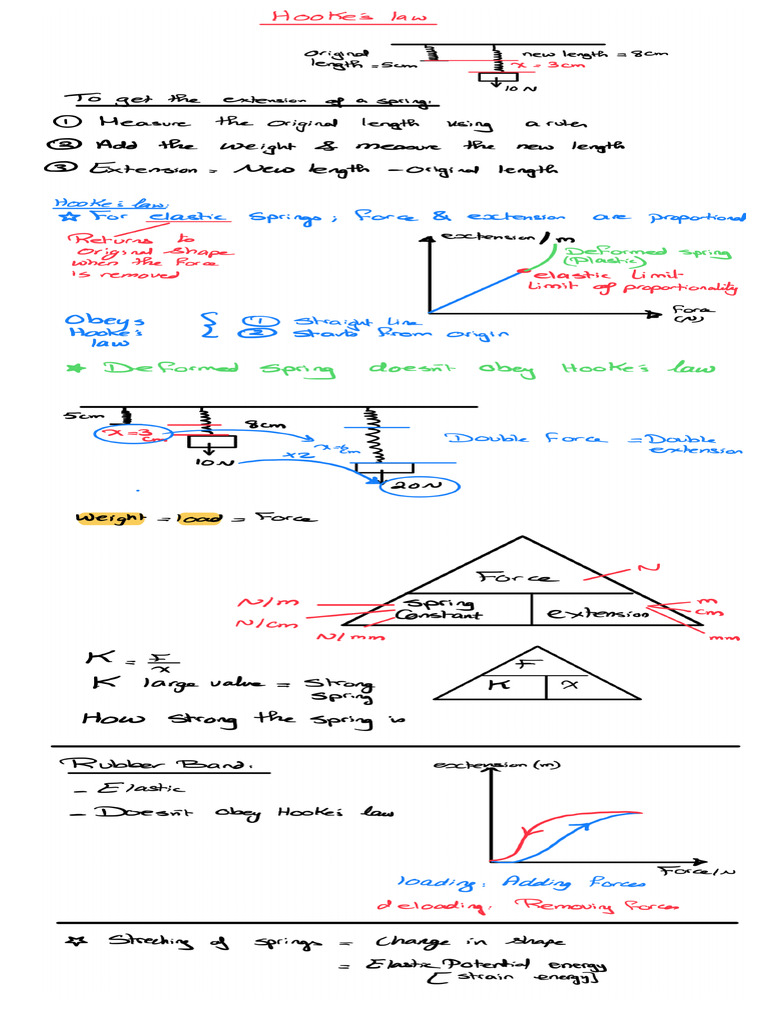 Hooke's law
original length = 5cm
new length = 8cm
x = 3cm
10N
To get the extension of a spring.
① Measure the original length using a ruler
② Add the weight & measure the new length
③ Extension = New length - original length
Hooke's law:
☆ For elastic springs; force & extension are proportional
Returns to
original shape
when the force
is removed
extension/m
Deformed spring
(Plastic)
elastic limit
limit of proportionality
Force
(N)
Obeys
Hooke's
law
{ ① straight line
② starts from origin
★ Deformed spring doesn't obey Hooke's law
5cm
x = 3
cm
8cm
10N
x2
x=6
cm
20N
Double force = Double
extension
Weight = load = Force
Force
N
spring
Constant
extension
N/m
N/cm
N/mm
m
cm
mm
K = F/x
K large value = strong
spring
How strong the spring is
F
K
x
Rubber Band.
- Elastic
- Doesn't obey Hooke's law
extension (m)
Force/N
loading: Adding forces
deloading: Removing forces
☆ Streching of springs = Change in shape
= Elastic Potential energy
[strain energy]